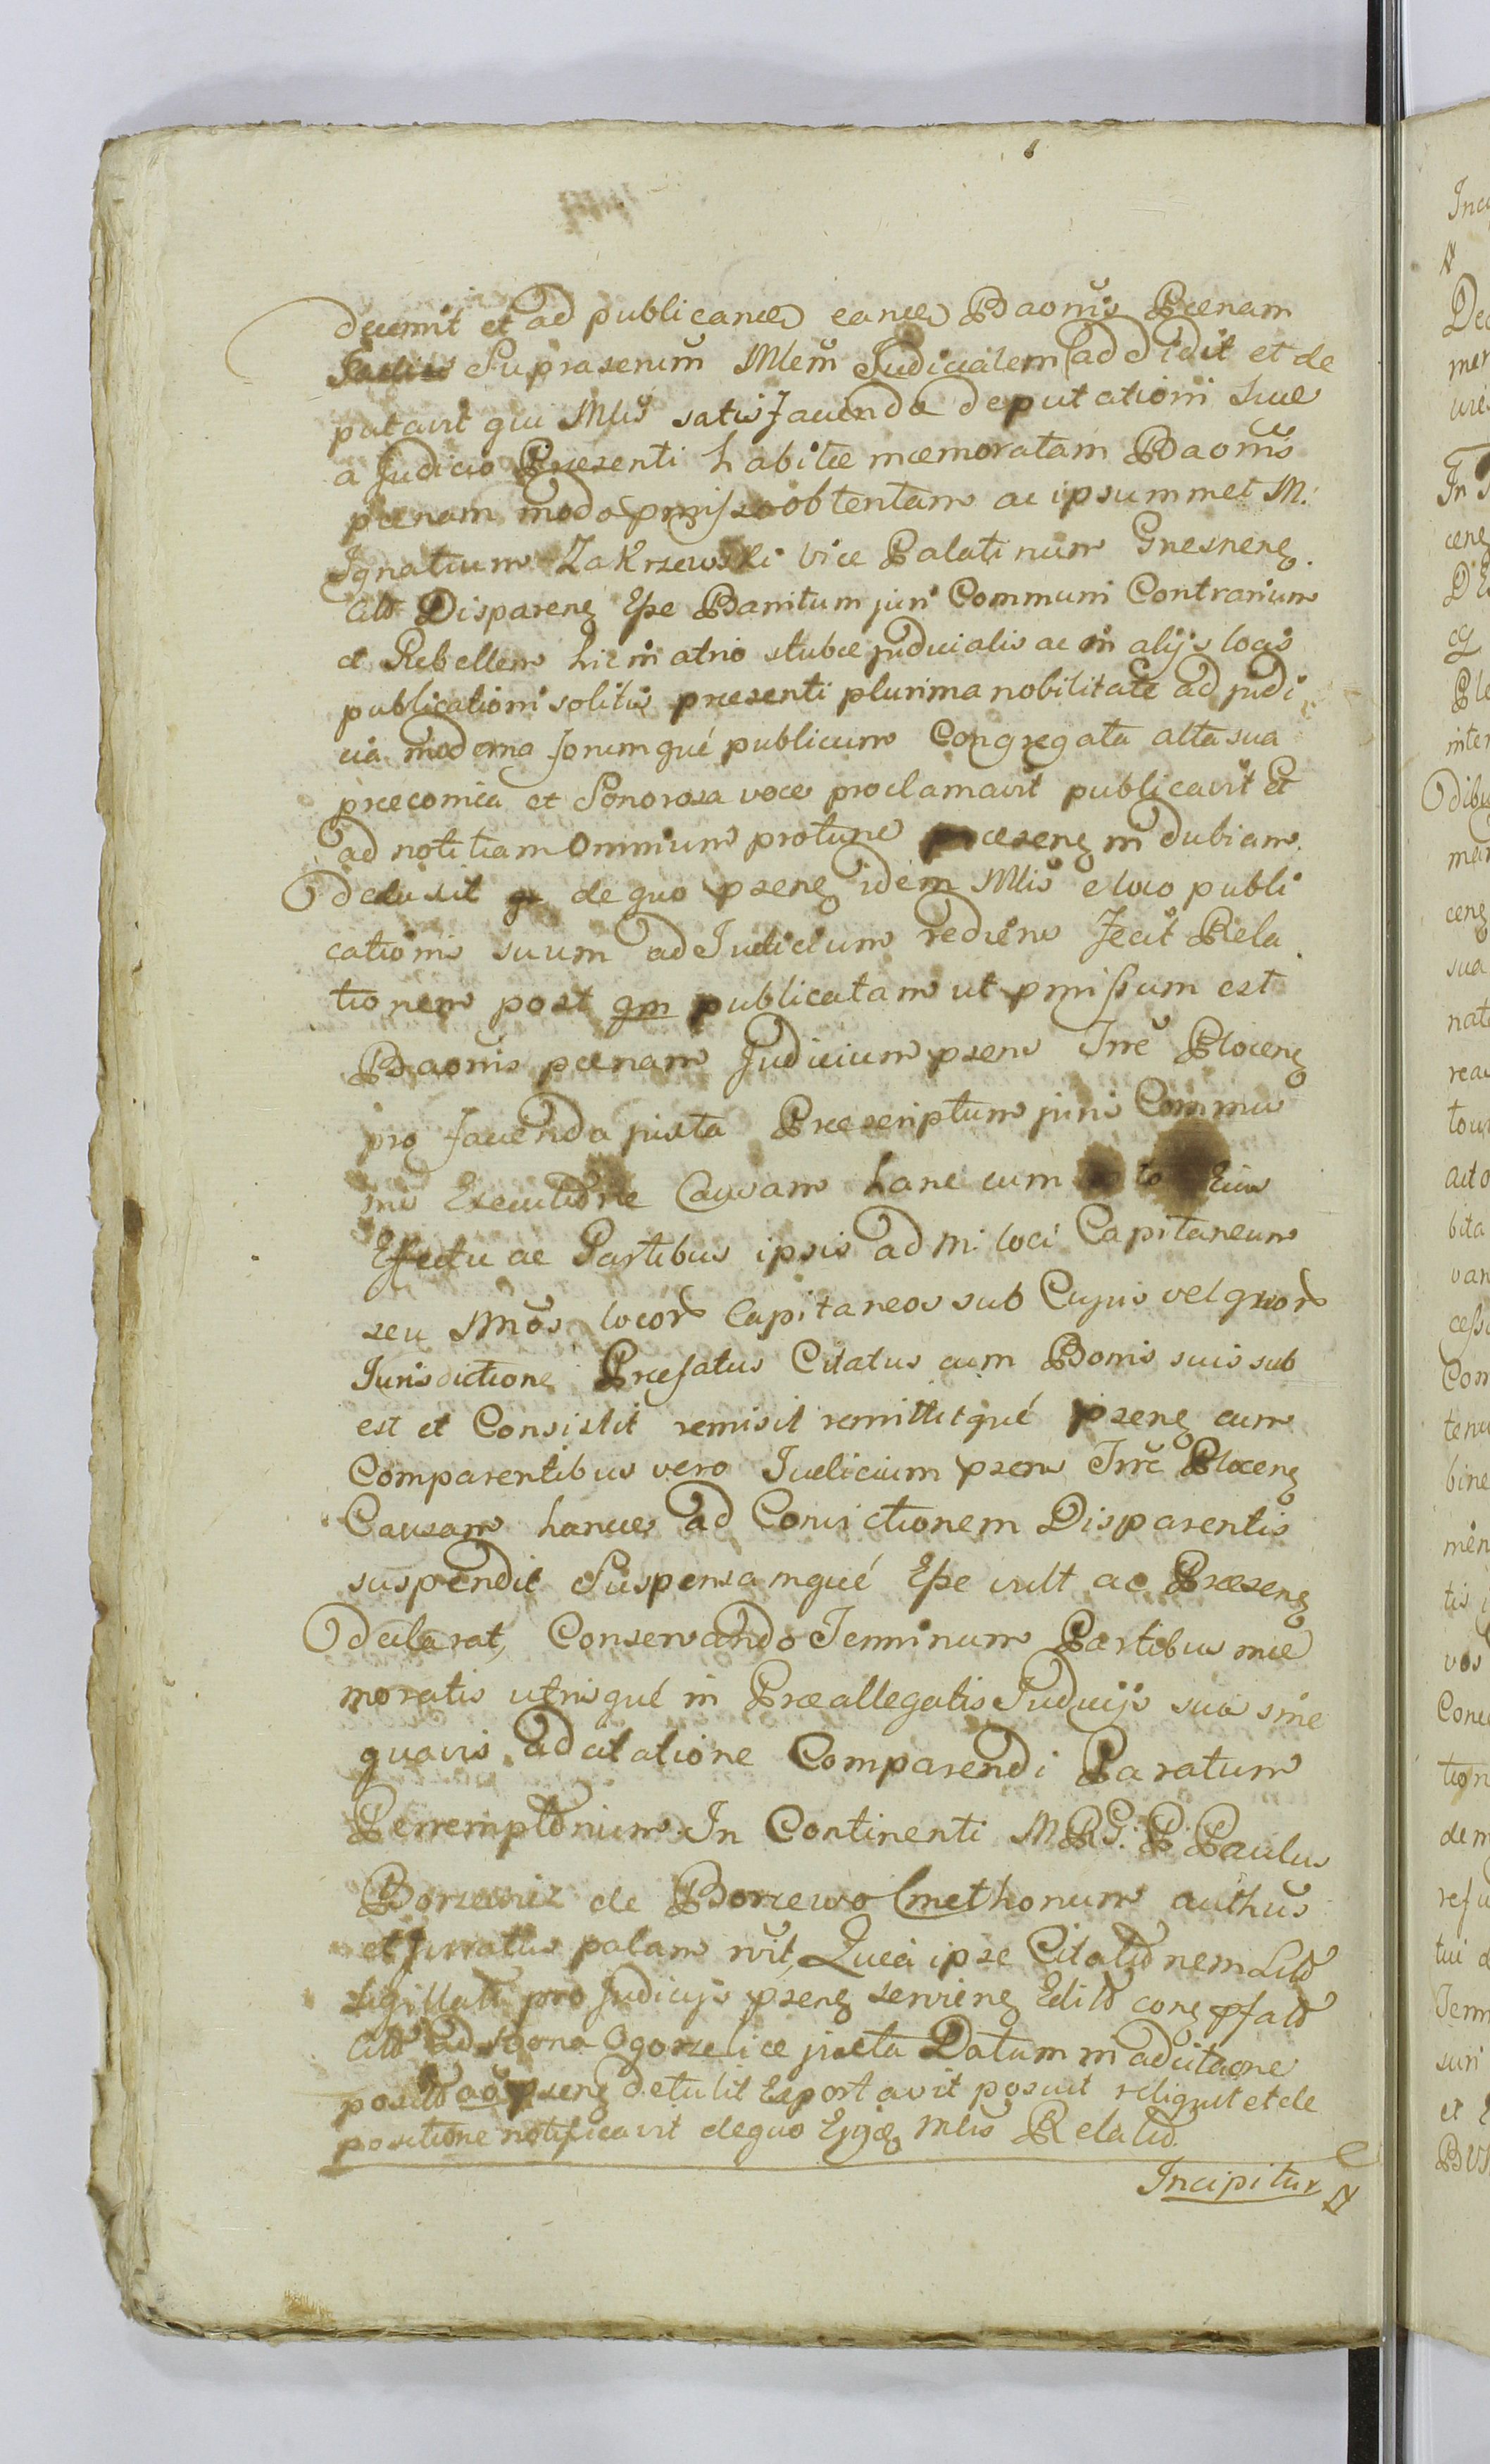 decernit et ad publicanda eance Baonis Pœnam
Suprascrium Mlem Judicialem addidit et de
putavit qui Mlis satisfaciendo deputationi suæ
a Judicio Præsenti habitæ mæmoratam Baonis
pœnam modo pmisso obtentam ac ipsummet M.
Ignatium Zakrzewski Vice Palatinum Gnesnen
Citt Disparen Eße Banitum juri Communi Contrarium
et Rebellem hic in atrio stubæ judicialis ac in alijs locis
publicationi solitis præsenti plurima nobilitate ad judi
cia moderna forumqué publicum Congregata alta sua
præconica et Sonorosa voce proclamavit publicavit Et
ad notitiam omnium protunc præsen in dubiam
deduxit de quo psens idem Mlis e loco publi
cationis suum ad Judicium rediens fecit Rela
tionem post qm publicatam ut pmißum est
Baonis pœnam Judicium psens Trre Plocen
pro facienda juxta Præscriptum juris Commu
nis Executione Causam hanc cum toto Eius
Effectu ac Partibus ipsis ad M. loci Capitaneum
seu Mños locor Capitaneos sub Cujus vel quor
Jurisdictione Præfatus Citatus cum Bonis suis sub
est et Consistit remisit remittitqué psen cum
Comparentibus vero Judicium psens Trre Plocen
Causam hance ad Convictionem Disparentis
suspendit Suspensamqué Eße vult ac Præsen
declarat, Conservando Terminum Partibus mæ
moratis utrisqué in Præallegatis Judicijs sua sine
quavis adcitatione Comparendi Paratum
Perremptorium In Continenti MRG. P. Paulus
Borzewiz de Borzewo Cmethonum authus
et Juratus palam rvit, Quia ipse Citationem Litt
sigillatt pro Judicijs psen servien Editt con pfatt
Citt ad Bona Ogorzelice juxta Datum in adcitaone
positt ac psen detulit Exportavit posuit reliquit et de
positione notificavit de quo Ejqæ Mlis Relatio
Incipitur